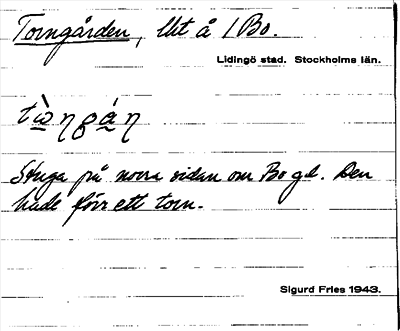 Torngården, Ut å 1 Bo.
Lidingö stad. Stockholms län.
Stuga på norra sidan om Bo gd. Den
hade förr ett torn.
Sigurd Fries 1943.